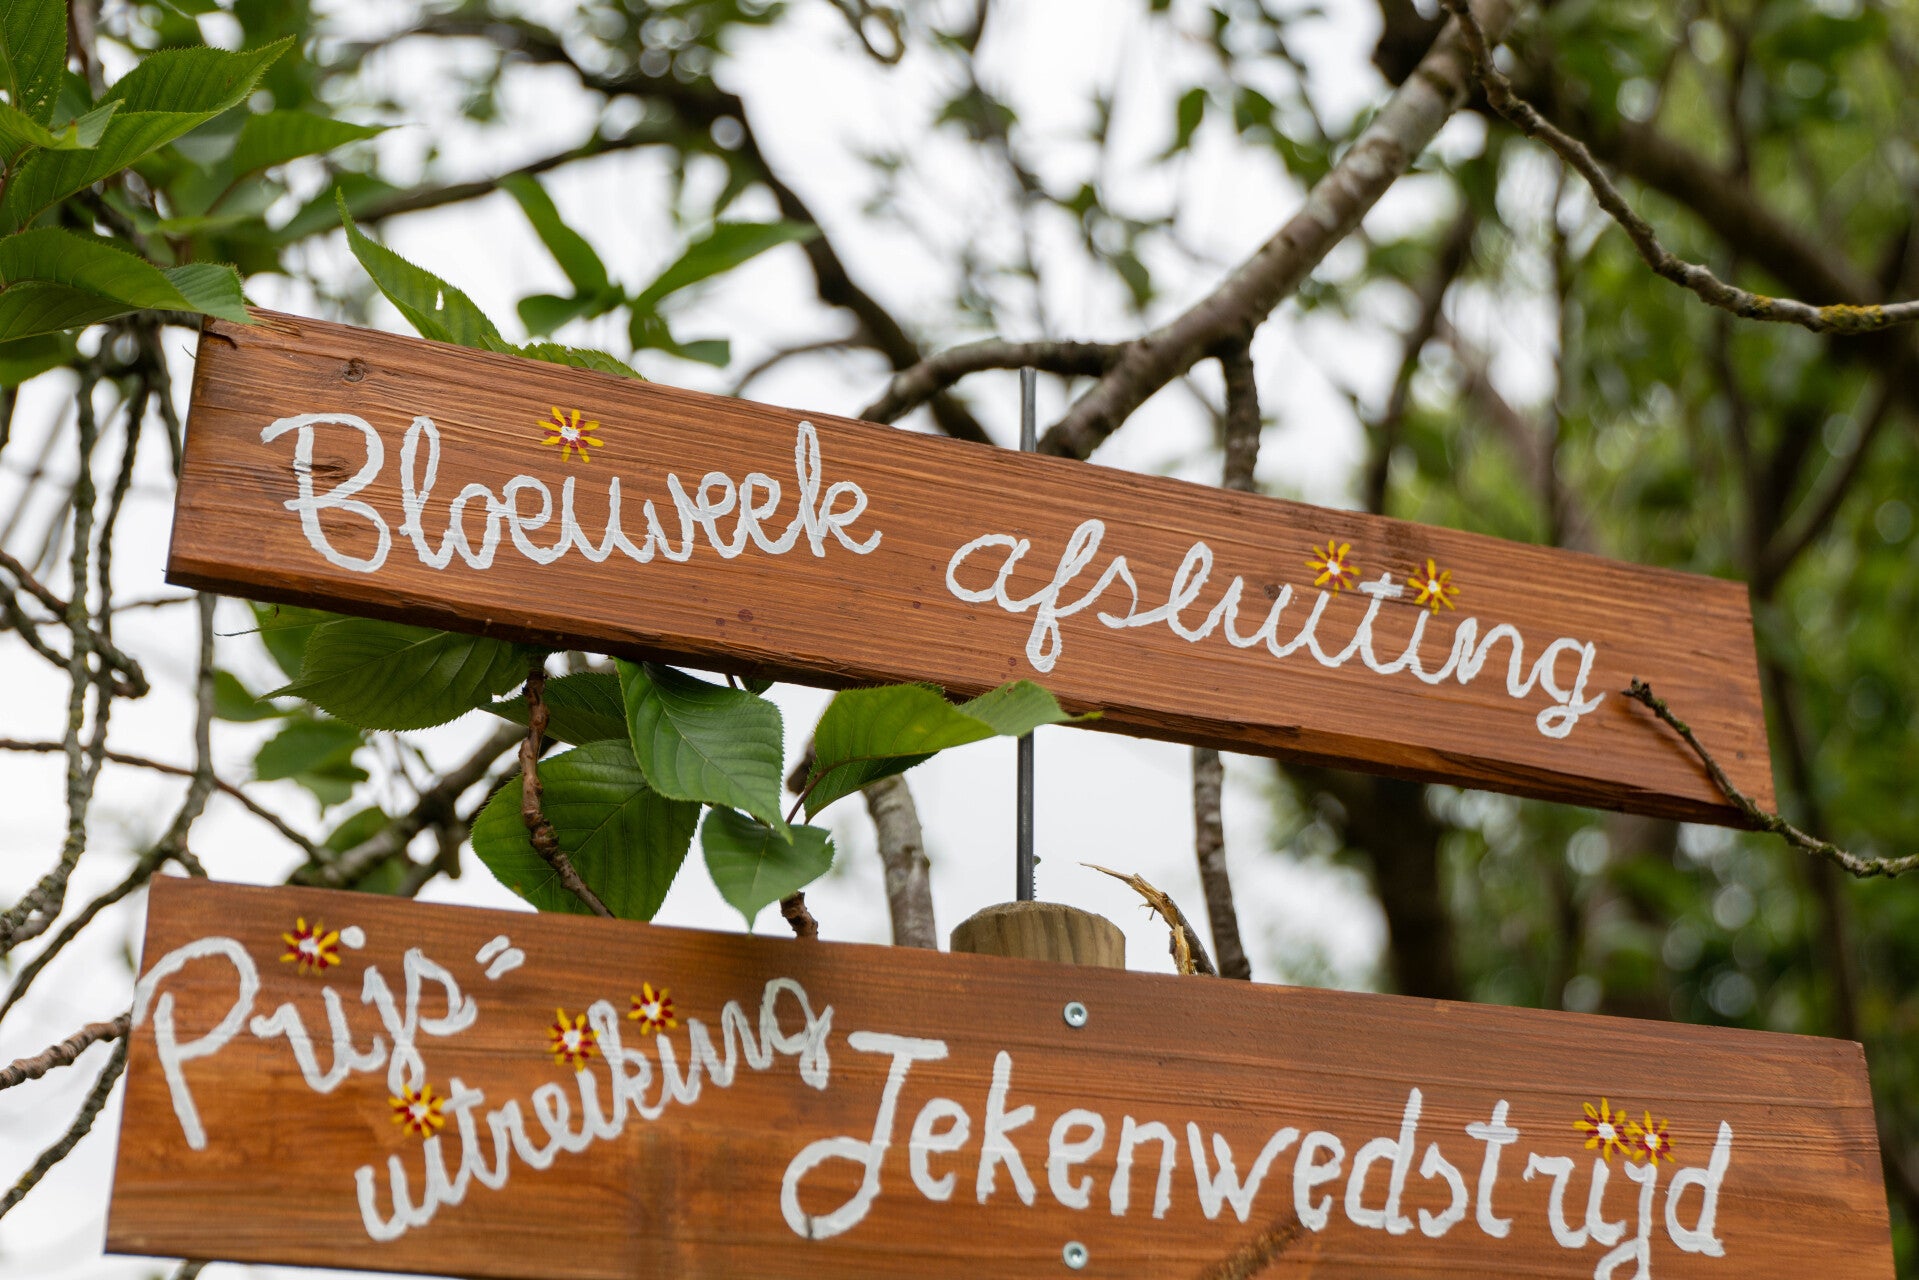 Bloeiweek afsluiting
Prijs=
uitreiking Tekenwedstrijd